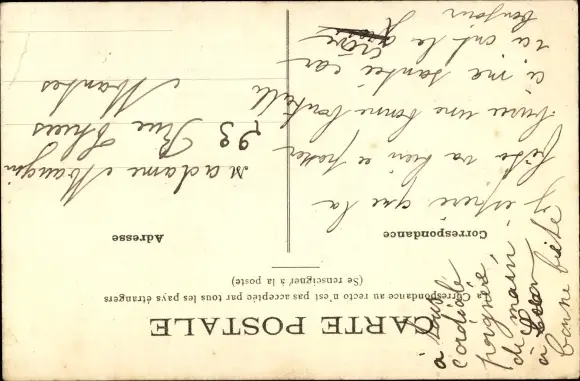 CARTE POSTALE
La Correspondance au recto n'est pas acceptée par tous les pays étrangers
(Se renseigner à la poste)
Correspondance
j espère que la
fête va bien ce passer
une bonne bouteille
santée car
bonjour
Adresse
Madame Maugin
23 Rue Thiers
Mantes
à tous
cordiale
poignée,
de main
à
bonne fête